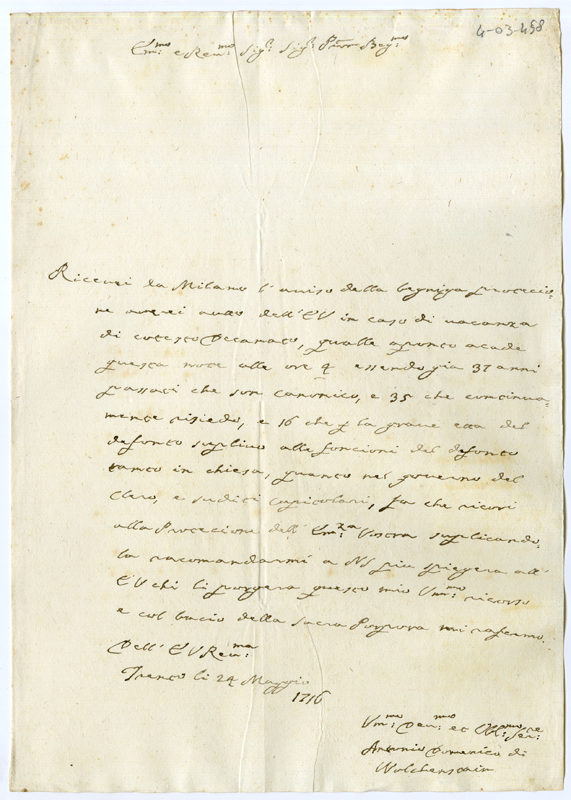 4-03-498
Em:mo e Reu:mo Sig:r Sig:r Pron Bog:mo
Riceuei da Milano l'auiso della begnigna protecio=
ne auuto dell'EV in caso di uacanza
di cotesto Decanato, qualle aponto acade
questa note alle ore 4 essendo gia 37 anni
passati che son Canonico, e 35 che continua=
mente risiedo, e 16 che p la graue eta del
defonto supliuo alle foncioni del defonto
tanto in chiesa, quanto nel gouerno del
Clero, e suditi capitolari, fa che ricori
alla Protecione dell'Em:za Vostra suplicando=
la racomandarmi a NS piu spiegera all'
EV chi li porgera questo mio Vm:mo ricorso
e col bacio della sacra Porpora mi rafermo
Dell'EV Reu:ma
Trento li 24 Maggio
1716
Vm:mo Deu:mo et Obl:mo Ser:re
Antonio Domenico di
Wolchenstain